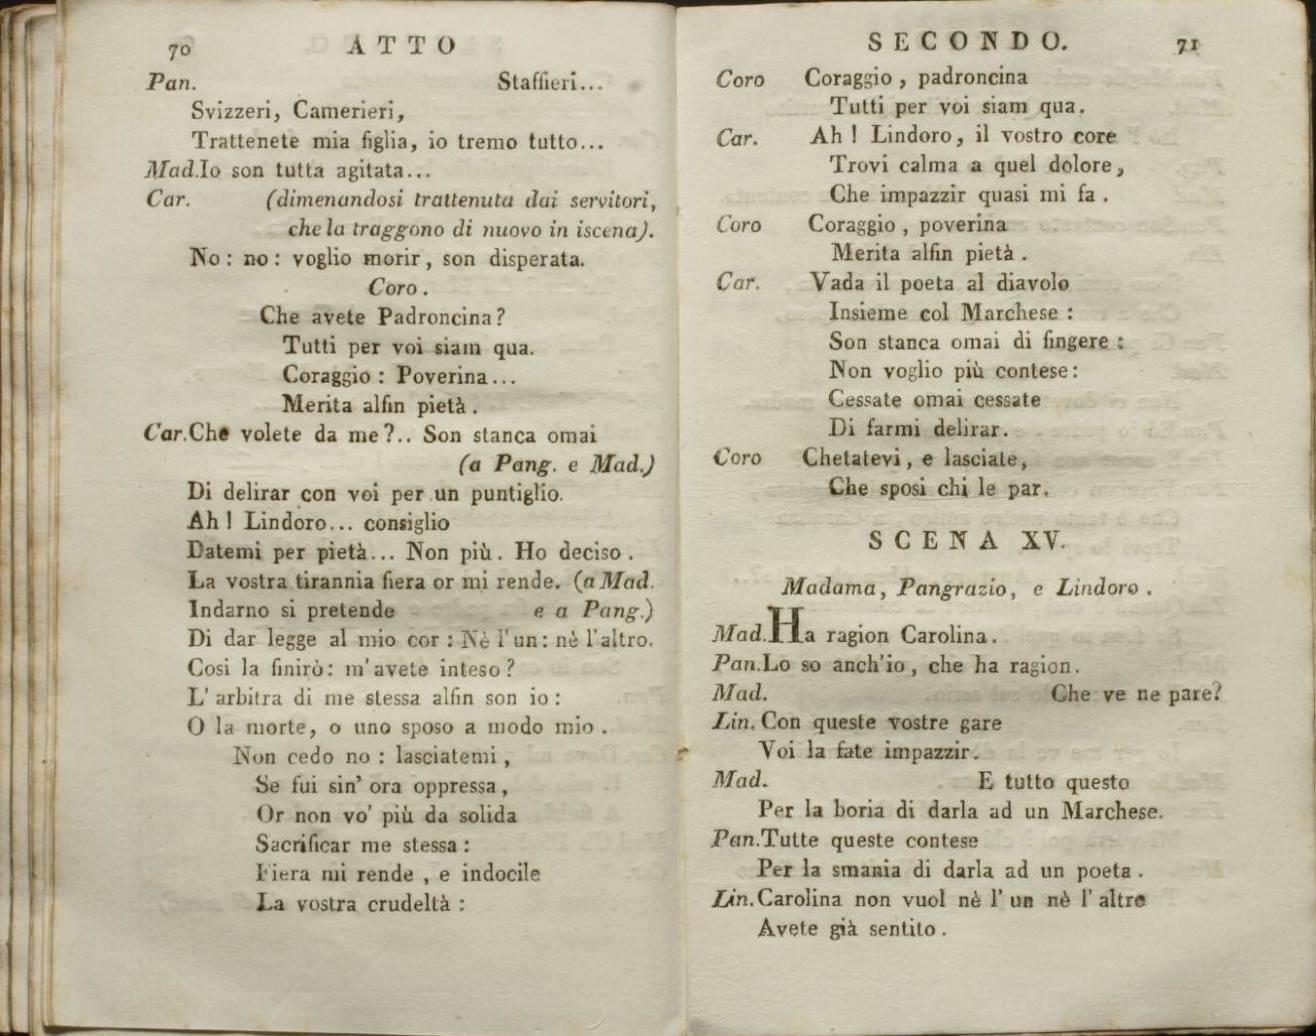 70 ATTO
Pan. Staffieri...
Svizzeri, Camerieri,
Trattenete mia figlia, io tremo tutto...
Mad. Io son tutta agitata...
Car. (dimenandosi trattenuta dai servitori,
che la traggono di nuovo in iscena).
No: no: voglio morir, son disperata.
Coro.
Che avete Padroncina?
Tutti per voi siam qua.
Coraggio: Poverina...
Merita alfin pietà.
Car. Che volete da me?.. Son stanca omai
(a Pang. e Mad.)
Di delirar con voi per un puntiglio.
Ah! Lindoro... consiglio
Datemi per pietà... Non più. Ho deciso.
La vostra tirannia fiera or mi rende. (a Mad.
Indarno si pretende e a Pang.)
Di dar legge al mio cor: Nè l'un: nè l'altro.
Cosi la finirò: m'avete inteso?
L'arbitra di me stessa alfin son io:
O la morte, o uno sposo a modo mio.
Non cedo no: lasciatemi,
Se fui sin' ora oppressa,
Or non vo' più da solida
Sacrificar me stessa:
Fiera mi rende, e indocile
La vostra crudeltà:
SECONDO. 71
Coro Coraggio, padroncina
Tutti per voi siam qua.
Car. Ah! Lindoro, il vostro core
Trovi calma a quel dolore,
Che impazzir quasi mi fa.
Coro Coraggio, poverina
Merita alfin pietà.
Car. Vada il poeta al diavolo
Insieme col Marchese:
Son stanca omai di fingere:
Non voglio più contese:
Cessate omai cessate
Di farmi delirar.
Coro Chetatevi, e lasciate,
Che sposi chi le par.
SCENA XV.
Madama, Pangrazio, e Lindoro.
Mad. Ha ragion Carolina.
Pan. Lo so anch'io, che ha ragion.
Mad. Che ve ne pare?
Lin. Con queste vostre gare
Voi la fate impazzir.
Mad. E tutto questo
Per la boria di darla ad un Marchese.
Pan. Tutte queste contese
Per la smania di darla ad un poeta.
Lin. Carolina non vuol nè l'un nè l'altro
Avete già sentito.